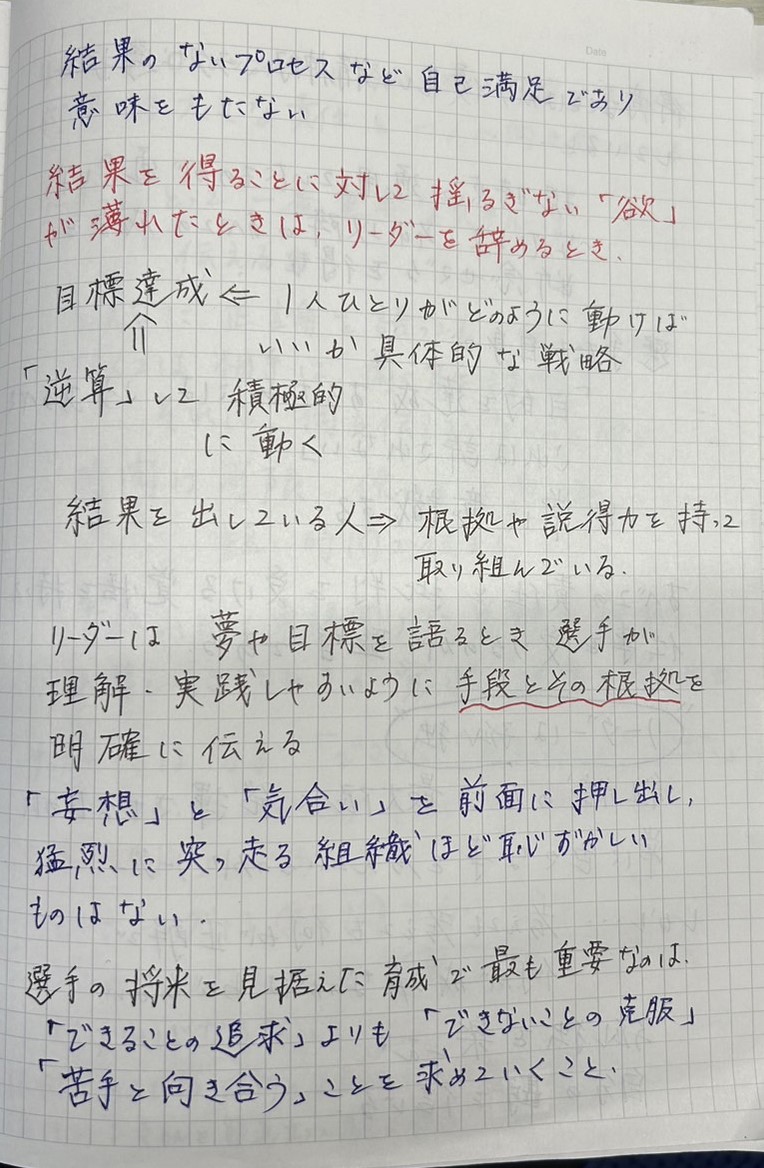 Date
結果のないプロセスなど自己満足であり
意味をもたない
結果を得ることに対して揺るぎない「欲」
が薄れたときは、リーダーを辞めるとき.
目標達成 ⇐ 1人ひとりがどのように動けば
いいか具体的な戦略
「逆算」して積極的
に動く
結果を出している人⇒ 根拠や説得力を持って
取り組んでいる.
リーダーは 夢や目標を語るとき 選手が
理解・実践しやすいように手段とその根拠を
明確に伝える
「妄想」と「気合い」を前面に押し出し,
猛烈に突っ走る組織ほど恥ずかしい
ものはない.
選手の将来を見据えた育成で最も重要なのは、
「できることの追求」よりも「できないことの克服」
「苦手と向き合う」ことを求めていくこと.